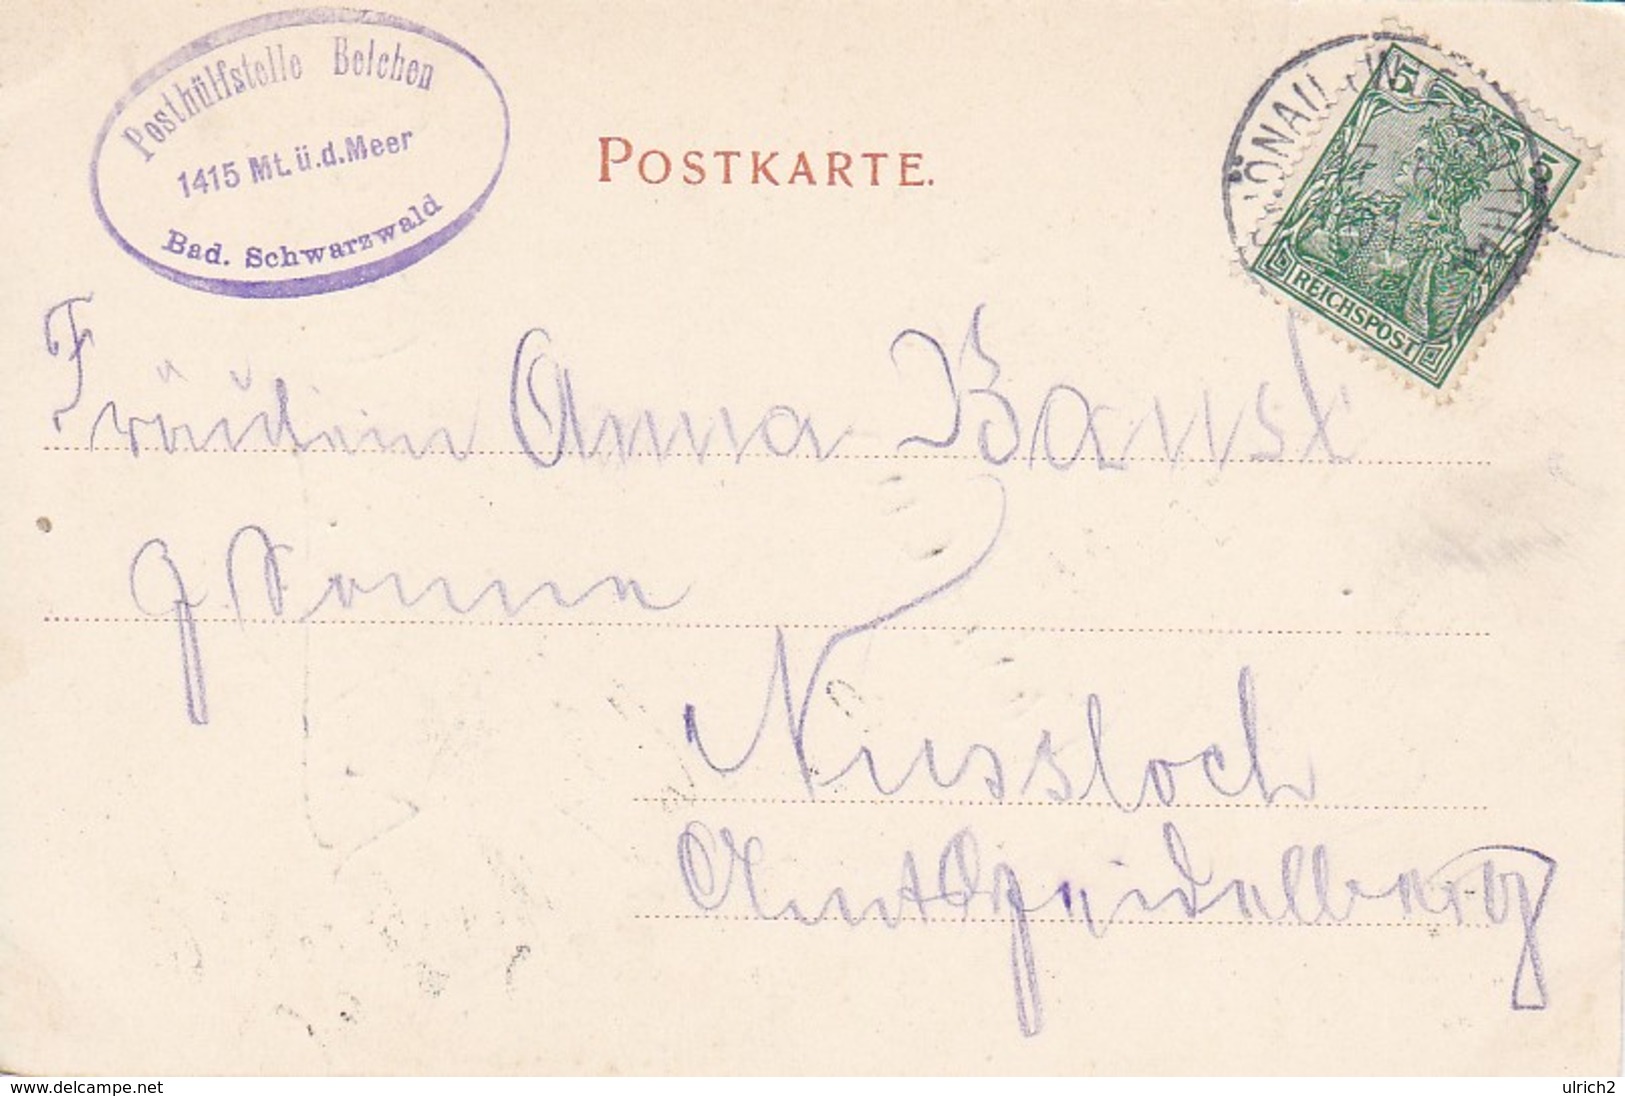 Posthülfstelle Belchen
1415 Mt. ü.d. Meer
Bad. Schwarzwald
POSTKARTE.
5 5
REICHSPOST
Fräulein Anna
z Sonne
Nussloch
Amt Heidelberg
www.delcampe.net
ulrich2